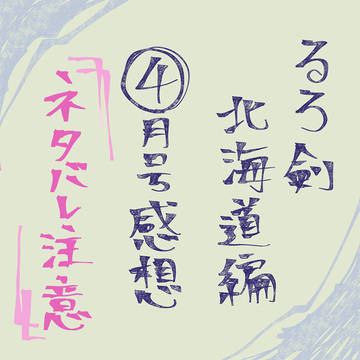 るろ剣
北海道編
④月号感想
ネタバレ注意